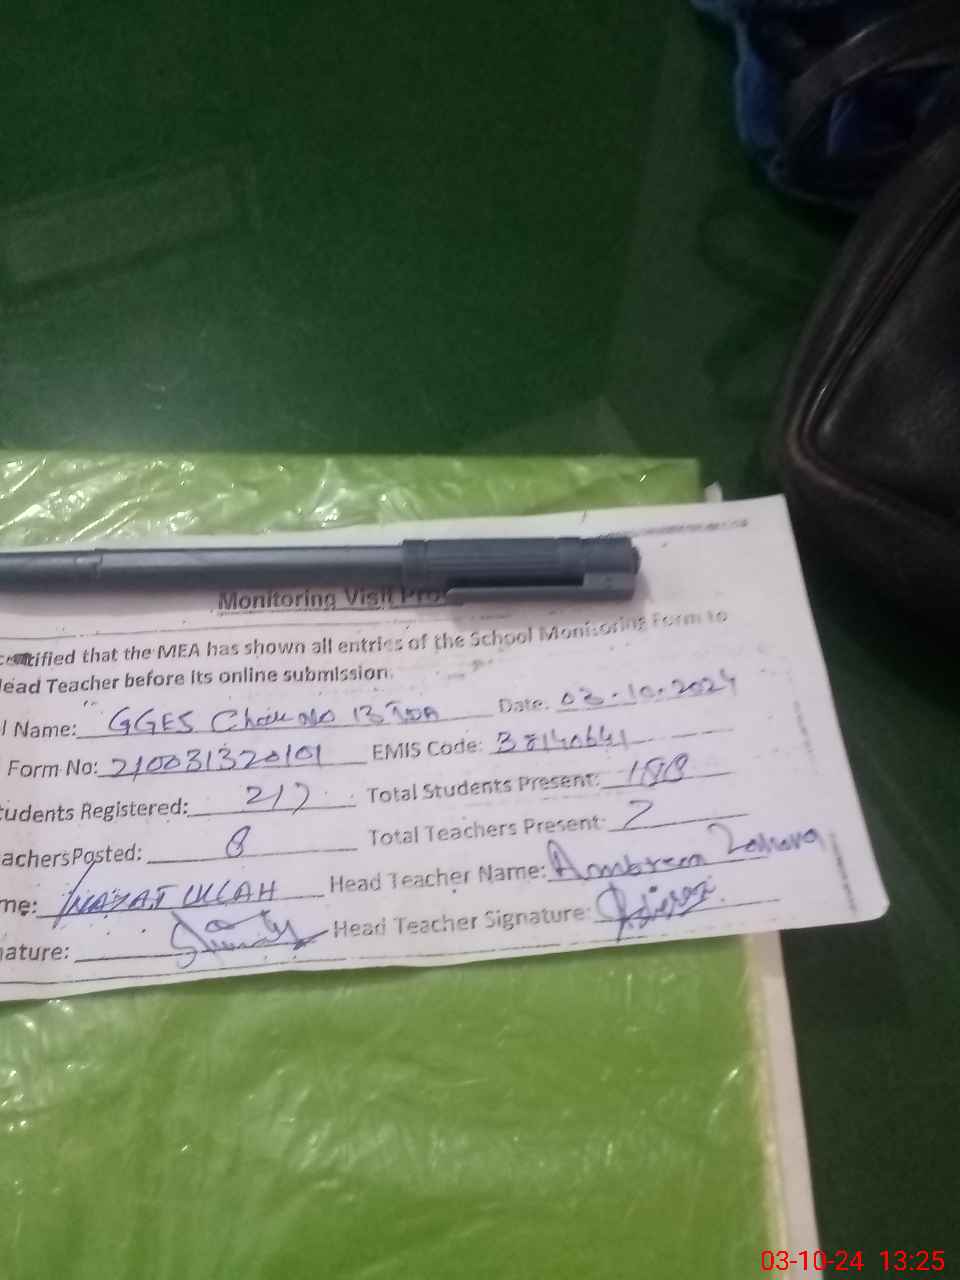 Monitoring Visit Pro
certified that the MEA has shown all entries of the School Monitoring Form to
Head Teacher before its online submission.
l Name: GGES Chak No 13 TDA Date: 03-10-2024
Form No: 210031320101 EMIS Code: 38140641
tudents Registered: 217 Total Students Present: 188
achers Posted: 8 Total Teachers Present: 7
me: INAYAT ULLAH Head Teacher Name: Ambreen Zahora
nature: Head Teacher Signature:
03-10-24 13:25